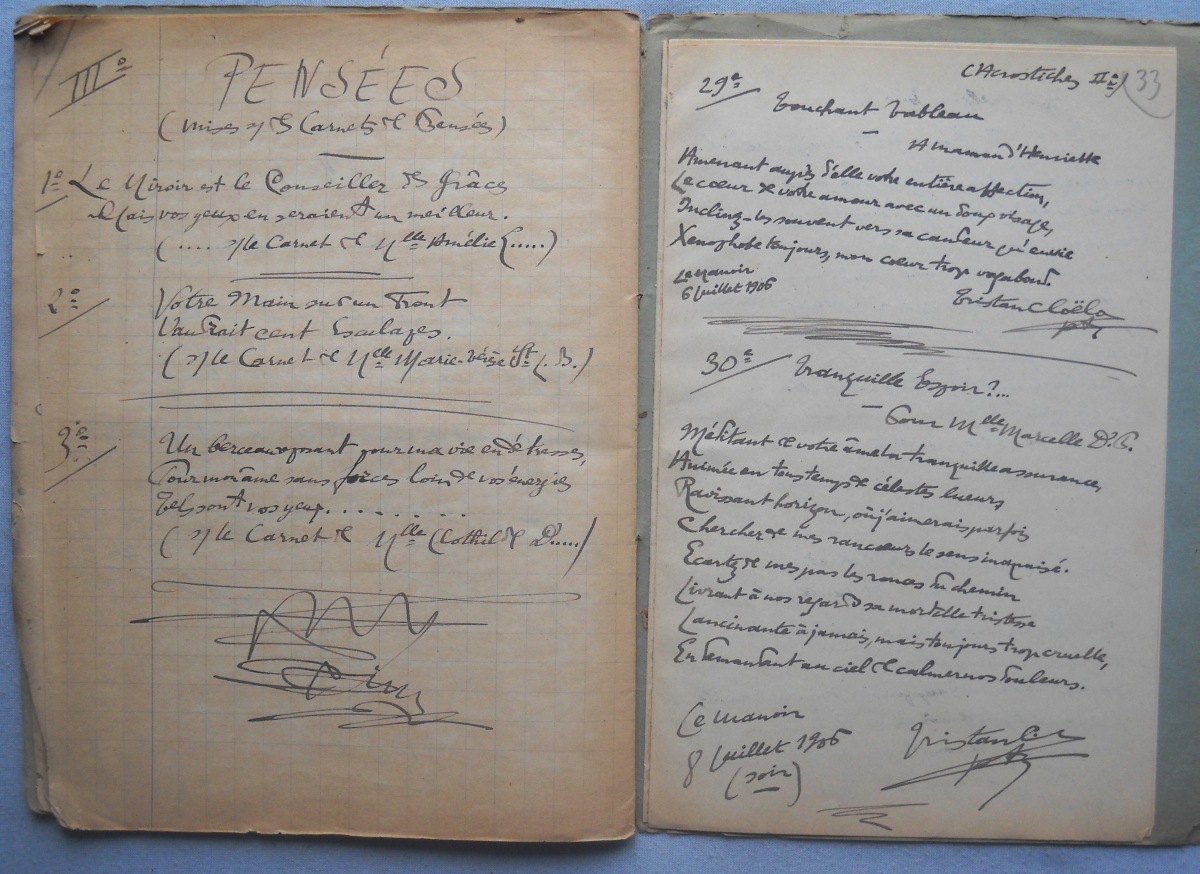 IIIº
PENSÉES
(mises s/ des Carnets de Pensées)
1º Le Miroir est le Conseiller des Grâces
Mais vos yeux en seraient un meilleur.
(.... s/ le Carnet de Mlle Amélie L.....)
2º Votre Main sur un Front
Vaudrait cent Esculapes.
(s/ le Carnet de Mlle Marie-Thérèse St L. B.)
3º Un berceau posant pour ma vie en détresses,
Pour mon âme sans forces loin de vos énergies
Tels sont vos yeux.........
(s/ le Carnet de Mlle Clothilde D.....)
Fin
(Acrostiches IIº) 33
29º Touchant Tableau
A maman d'Henriette
Amenant auprès d'elle votre entière affection,
Le cœur de votre amour avec un doux visage,
Inclinez-les souvent vers sa candeur qu'envie
Xenophobe toujours, mon cœur trop vagabond.
Le Manoir
6 Juillet 1906
Tristan Cloëlo
30º Tranquille Espoir?...
Pour Mlle Marcelle D. P.
Méditant de votre âme la tranquille assurance,
Animée en tous temps de célestes lueurs
Ravissant horizon, où j'aimerais parfois
Chercher de mes rancœurs le sens inapaisé.
Ecartez de mes pas les ronces du chemin
Livrant à nos regards sa mortelle tristesse
Lancinante à jamais, mais toujours trop cruelle,
En demandant au ciel de calmer nos douleurs.
Le Manoir
8 Juillet 1906
(soir)
Tristan